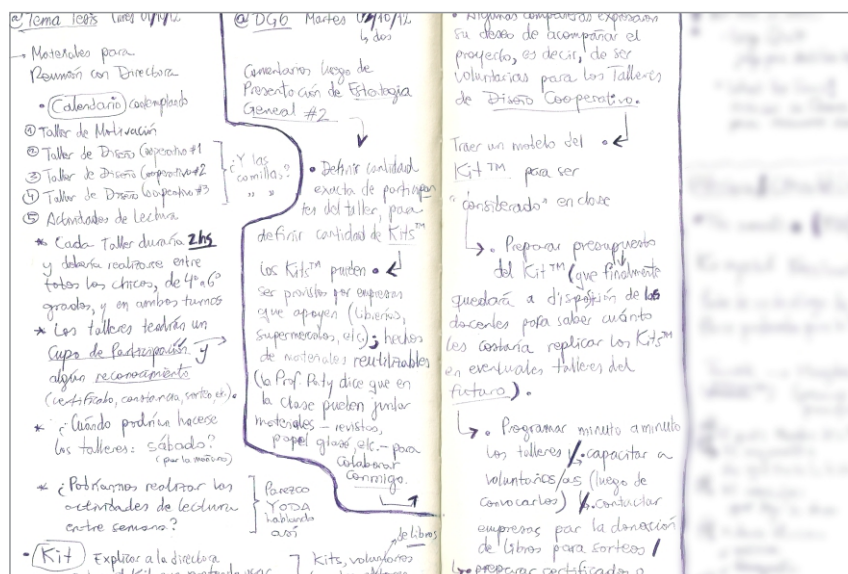 @ Tema Tesis
→ Materiales para
Reunión con Directora
• Calendario contemplando
① Taller de Motivación
② Taller de Diseño Cooperativo #1
③ Taller de Diseño Cooperativo #2
④ Taller de Diseño Cooperativo #3
¿Y las
comillas?
" "
⑤ Actividades de Lectura
* Cada Taller duraría 2hs
y debería realizarse entre
todos los chicos, de 4º a 6º
grados, y en ambos turnos
* Los talleres tendrán un
Cupo de Participación y
algún reconocimiento
(certificado, constancia, sorteo, etc).
* ¿Cuándo podrían hacerse
los talleres: sábado?
(por la mañana)
* ¿Podríamos realizar las
actividades de lectura
entre semana?
Parezco
YODA
hablando
así
• Kit Explicar a la directora
@ DG6 Martes 02/10/12
↳ dos
Comentarios luego de
Presentación de Estrategia
General #2
• Definir cantidad
exacta de participan
tes del taller, para
definir cantidad de Kits™
Los Kits™ pueden •
ser provistos por empresas
que apoyen (librerías,
supermercados, etc); hechos
de materiales reutilizables
(la Prof. Paty dice que en
la clase pueden juntar
materiales – revistas,
papel glasé, etc. – para
colaborar
conmigo.
de libros
Kits, voluntarios
• Algunas compañeras expresaron
su deseo de acompañar el
proyecto, es decir, de ser
voluntarias para los Talleres
de Diseño Cooperativo.
Traer un modelo del •
Kit™ para ser
"considerado" en clase
↳ • Preparar presupuesto
del Kit™ (que finalmente
quedará a disposición de los
docentes para saber cuánto
les costaría replicar los Kits™
en eventuales talleres del
futuro).
↳ • Programar minuto a minuto
los talleres /• capacitar a
voluntarios/as (luego de
convocarlos) /• contactar
empresas par la donación
de libros para sorteos /
↳• preparar certificados o